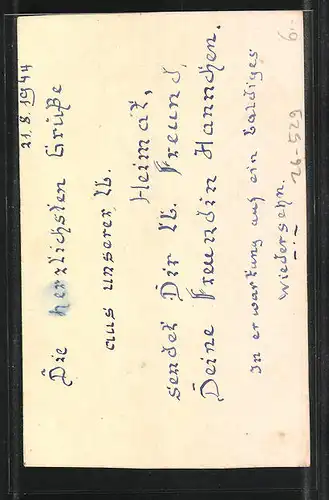 21.8.1944
Die herzlichsten Grüße
aus unserer lb.
Heimat,
sendet Dir lb. Freund,
Deine Freundin Hannchen.
In erwartung auf ein baldiges
Wiedersehn.
26-529
6.-